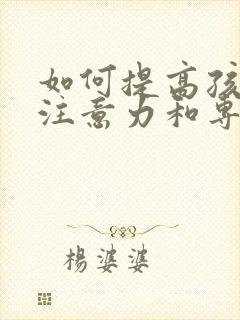 如何提高孩
注意力和專
楊婆婆